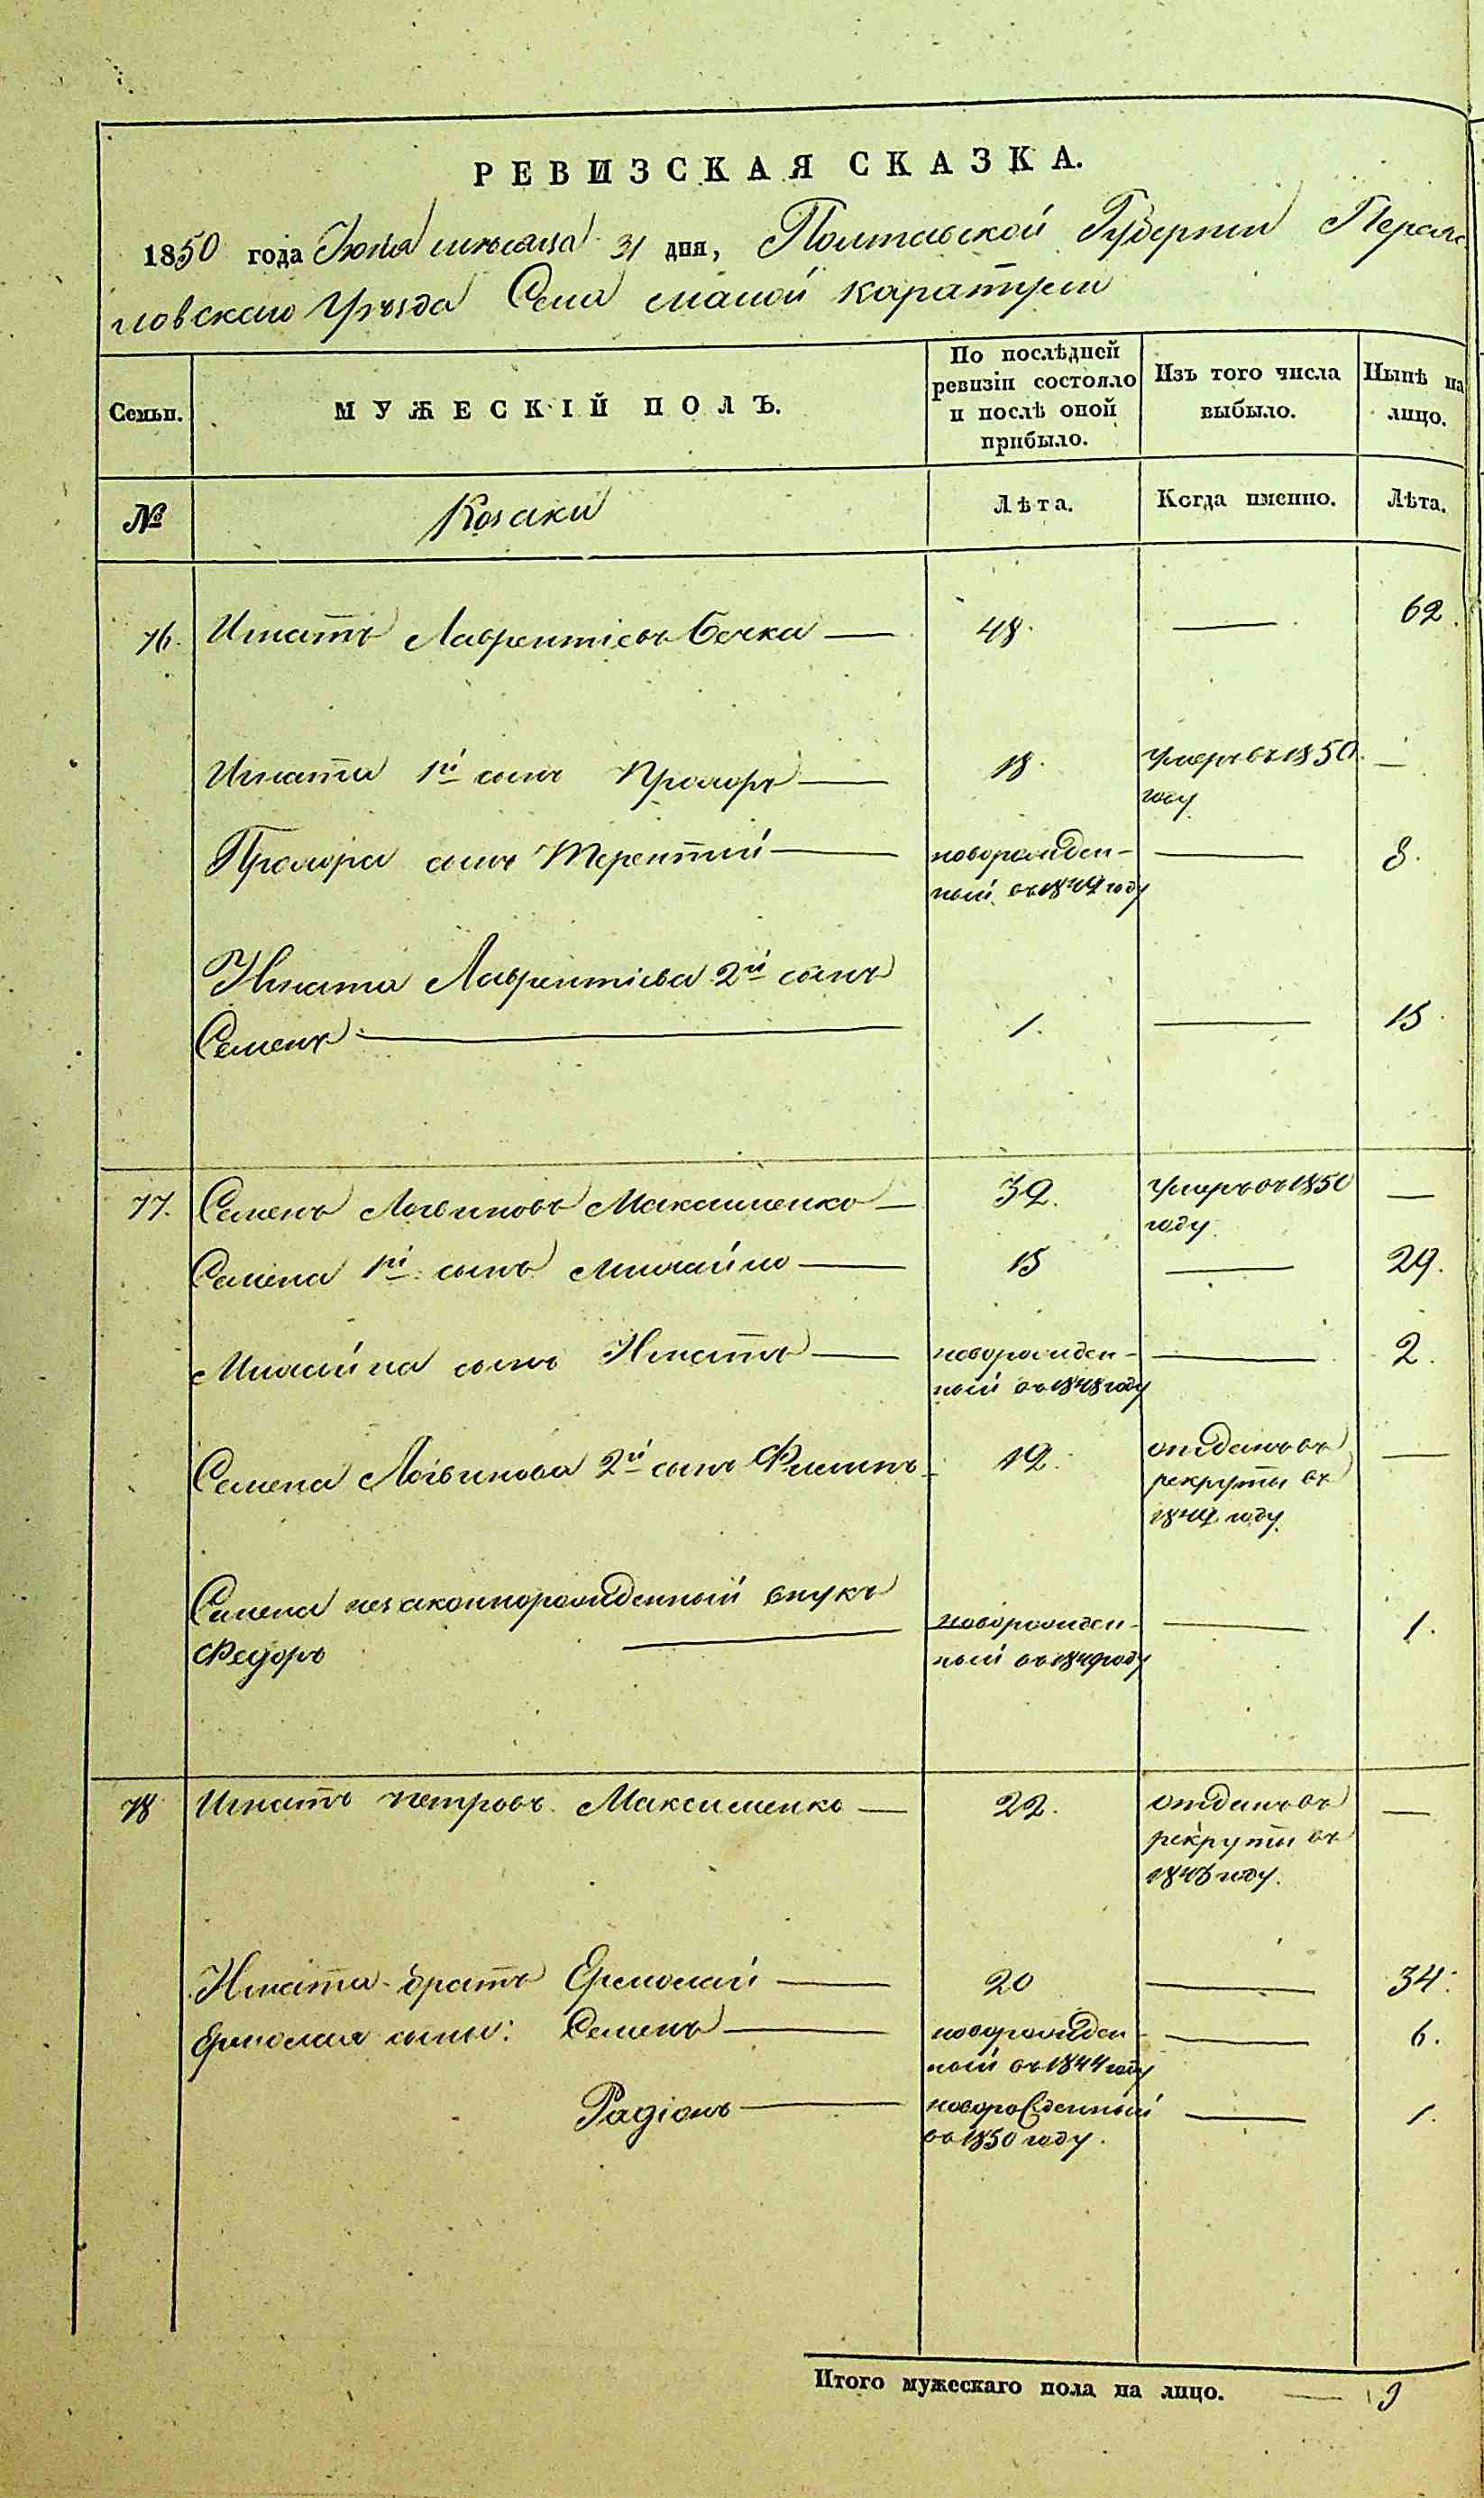 РЕВИЗСКАЯ СКАЗКА.
1850 года Іюля мѣсяца 31 дня, Полтавской Губерніи Переяс
ловскаго Уѣзда Села малой каратули
Семьи.
МУЖЕСКІЙ ПОЛЪ.
По послѣдней ревизіи состояло и послѣ оной прибыло.
Изъ того числа выбыло.
Нынѣ на лицо.
№
Козаки
Лѣта.
Когда именно.
Лѣта.
76. Игнатъ Лаврентіевъ Бечка — 48. — 62.
Игната 1й сынъ Прохоръ — 18. Умеръ въ 1850 —
году
Прохора сынъ Терентій — новорожден- — 8.
ный въ 1842 году
Игната Лаврентіева 2й сынъ
Семенъ — 1. — 15
77. Семенъ Логвиновъ Максименко — 39. Умеръ въ 1850 —
году.
Семена 1й сынъ михайло — 15 — 29.
михайла сынъ Игнатъ — новорожден- — 2.
ный въ 1848 году
Семена Логвинова 2й сынъ Филипъ — 12. отданъ въ —
рекруты въ
году.
Семена незаконнорожденный внукъ
Федоръ — новорожден- — 1.
ный въ 1849 году
78 Игнатъ петровъ Максименко — 22. отданъ въ —
рекруты въ
году.
Игната братъ Ермолай — 20 — 34.
Ермолая сыны: Семенъ — новорожден- — 6.
ный въ 1844 году
Радіонъ — новорожденный — 1.
въ 1850 году.
Итого мужескаго пола на лицо. — 9